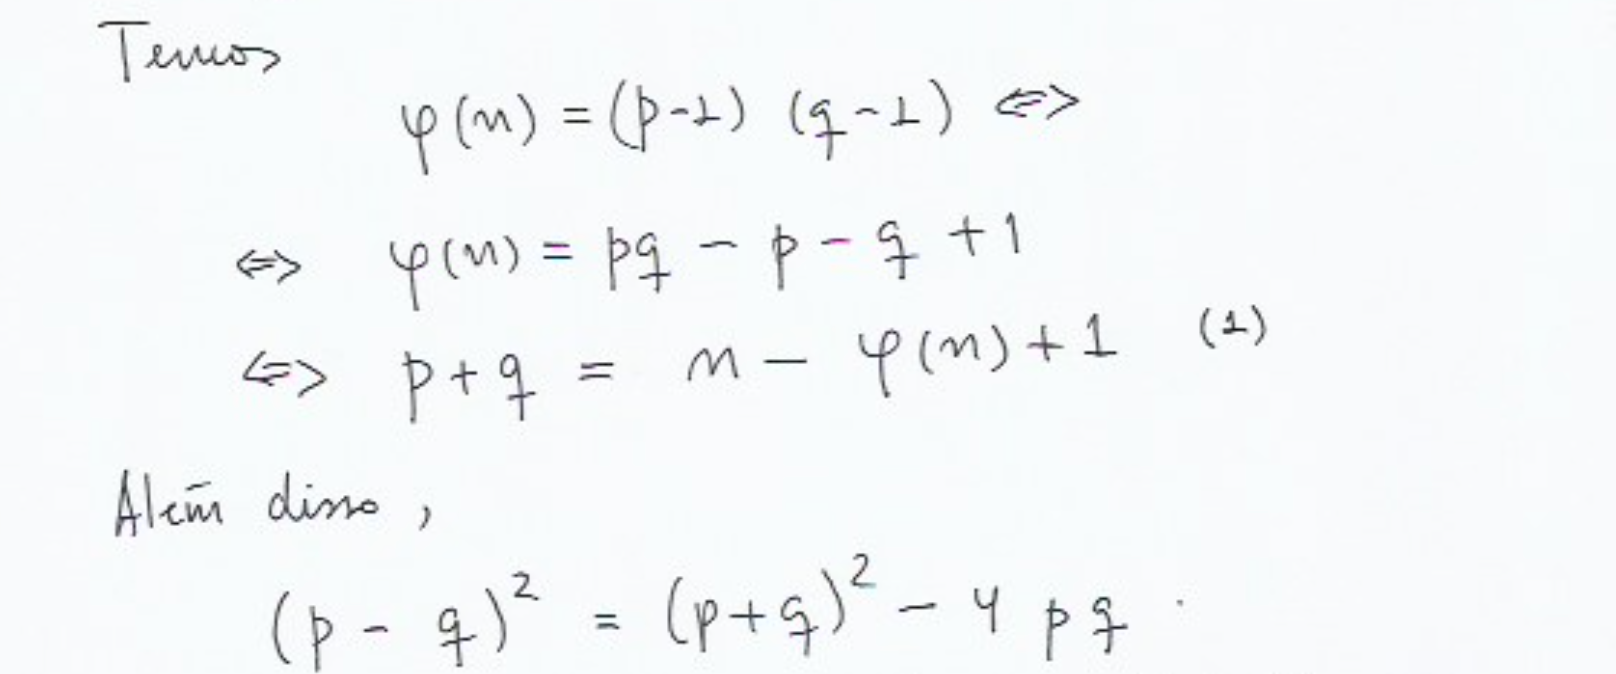 Temos
φ(n) = (p-1) (q-1) ⇔
⇔ φ(n) = pq - p - q + 1
⇔ p + q = n - φ(n) + 1 (1)
Além disso,
(p - q)² = (p+q)² - 4 p q.